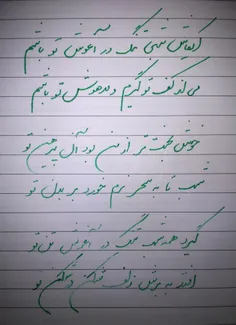 ای کاش شبی تنگ در آغوش تو باشم
می از کف تو گیرم و مدهوش تو باشم
خوش بخت تر از من بود آن پیرهن تو
شب تا به سحر نرم خورد بر بدن تو
گیرد همه شب تنگ در آغوش تن تو
افتد به برش زلف شکن در شکن تو